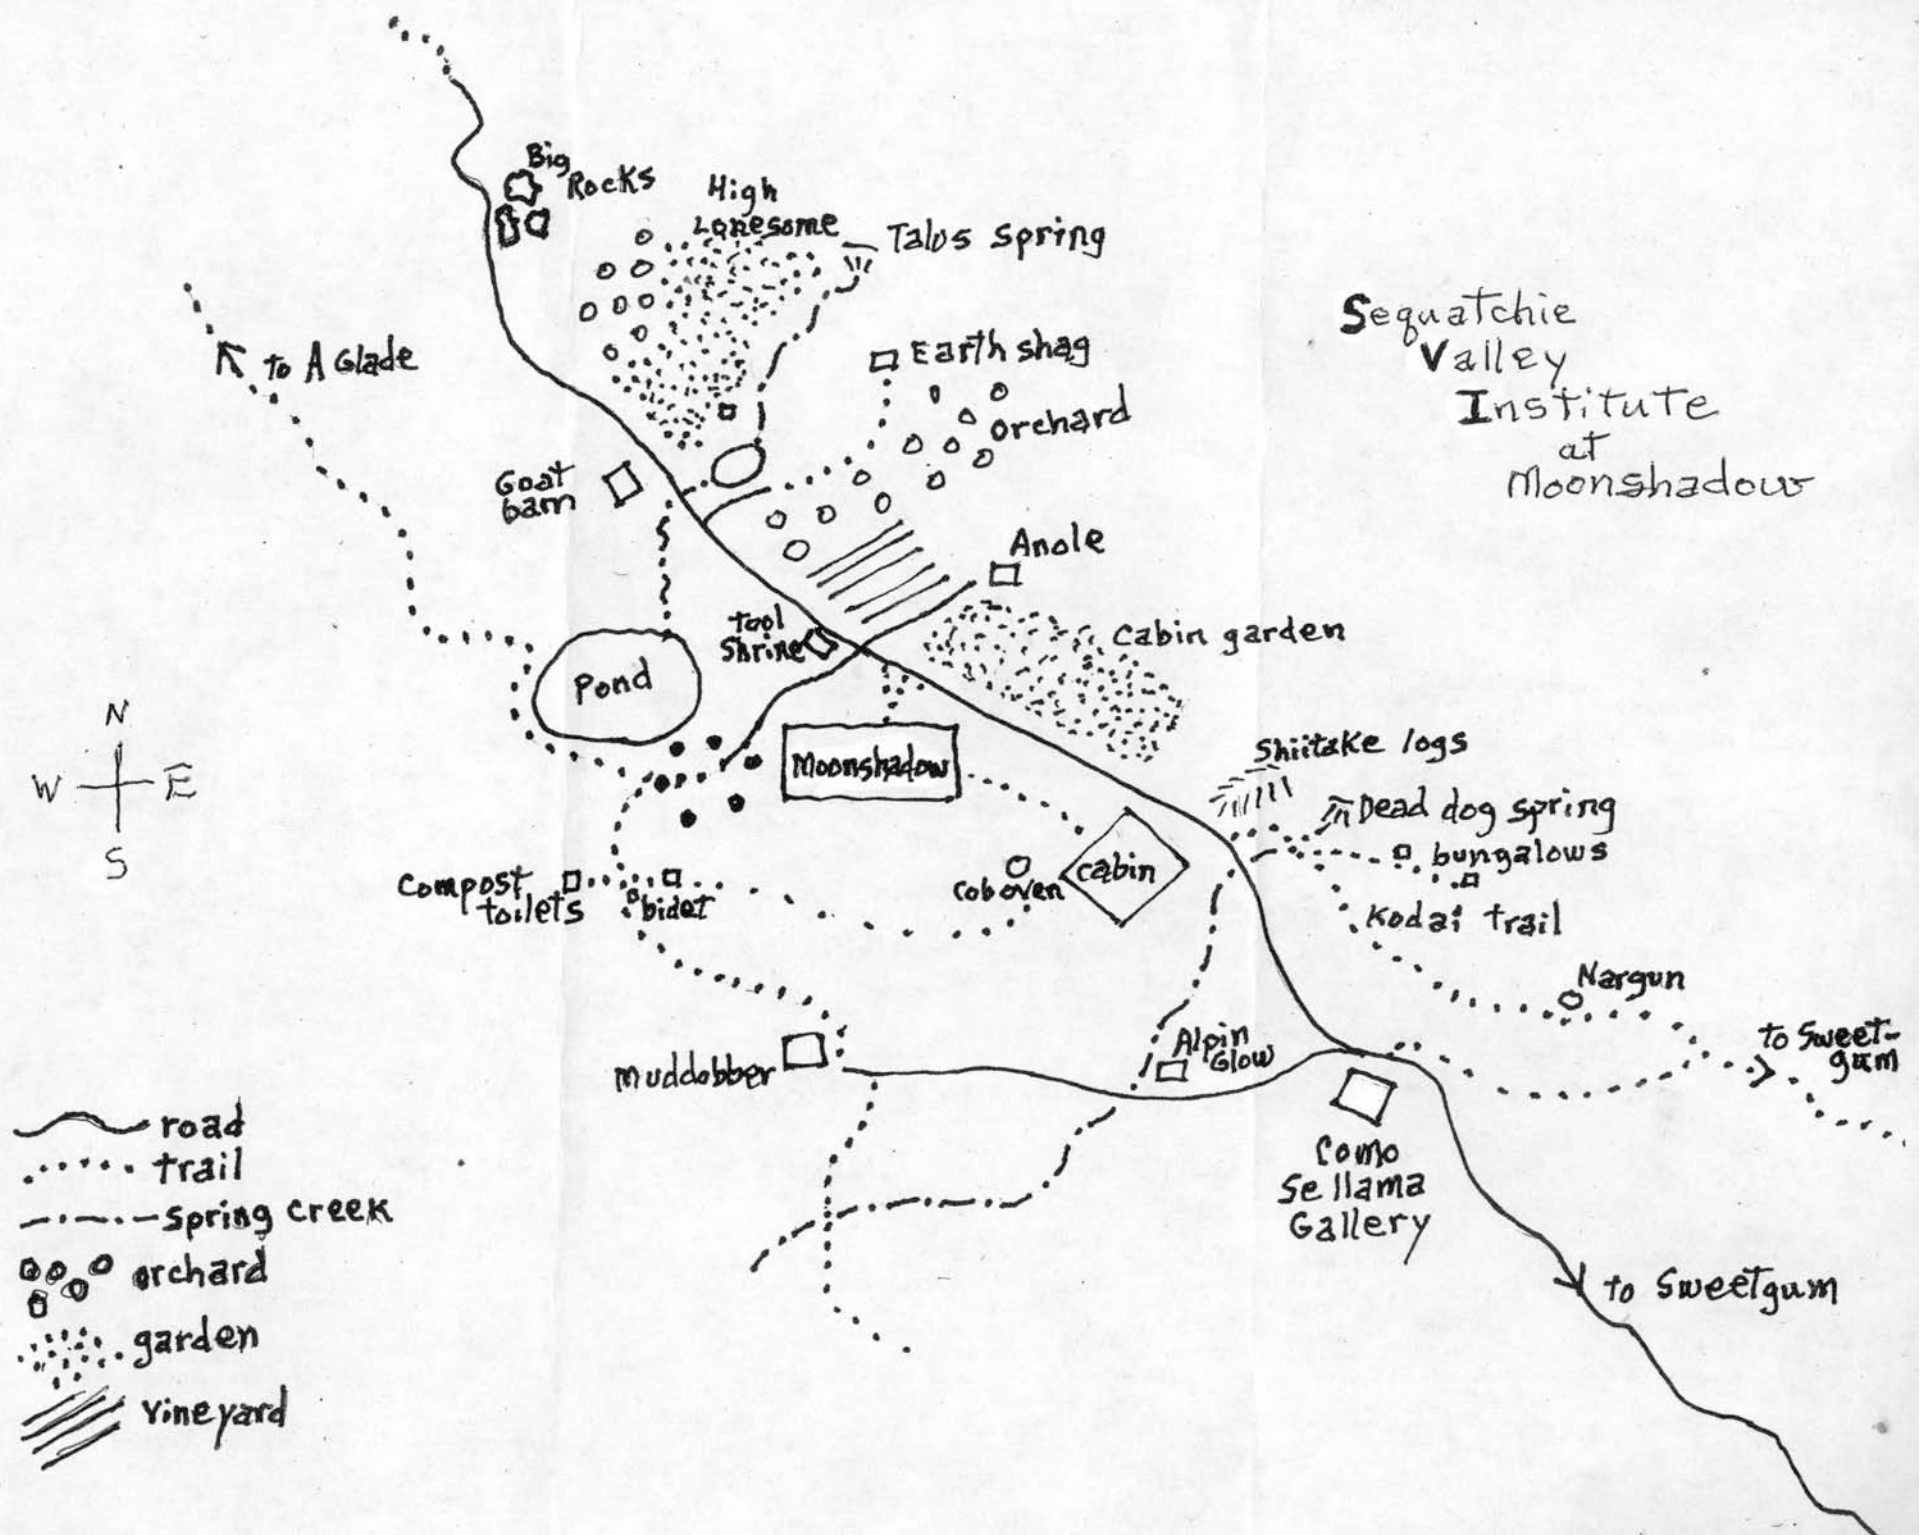 Big
Rocks
High
Lonesome
Talus Spring
Sequatchie
Valley
Institute
at
Moonshadow
to A Glade
Earth shag
orchard
Goat
barn
Anole
tool
Shrine
Cabin garden
Pond
N
W E
S
Moonshadow
Shiitake logs
Dead dog spring
bungalows
cabin
cob oven
Compost
toilets
bidet
Kodai trail
Nargun
to Sweet-
gum
Alpin
Glow
Muddobber
Como
Se llama
Gallery
to Sweetgum
road
trail
spring creek
orchard
garden
vineyard